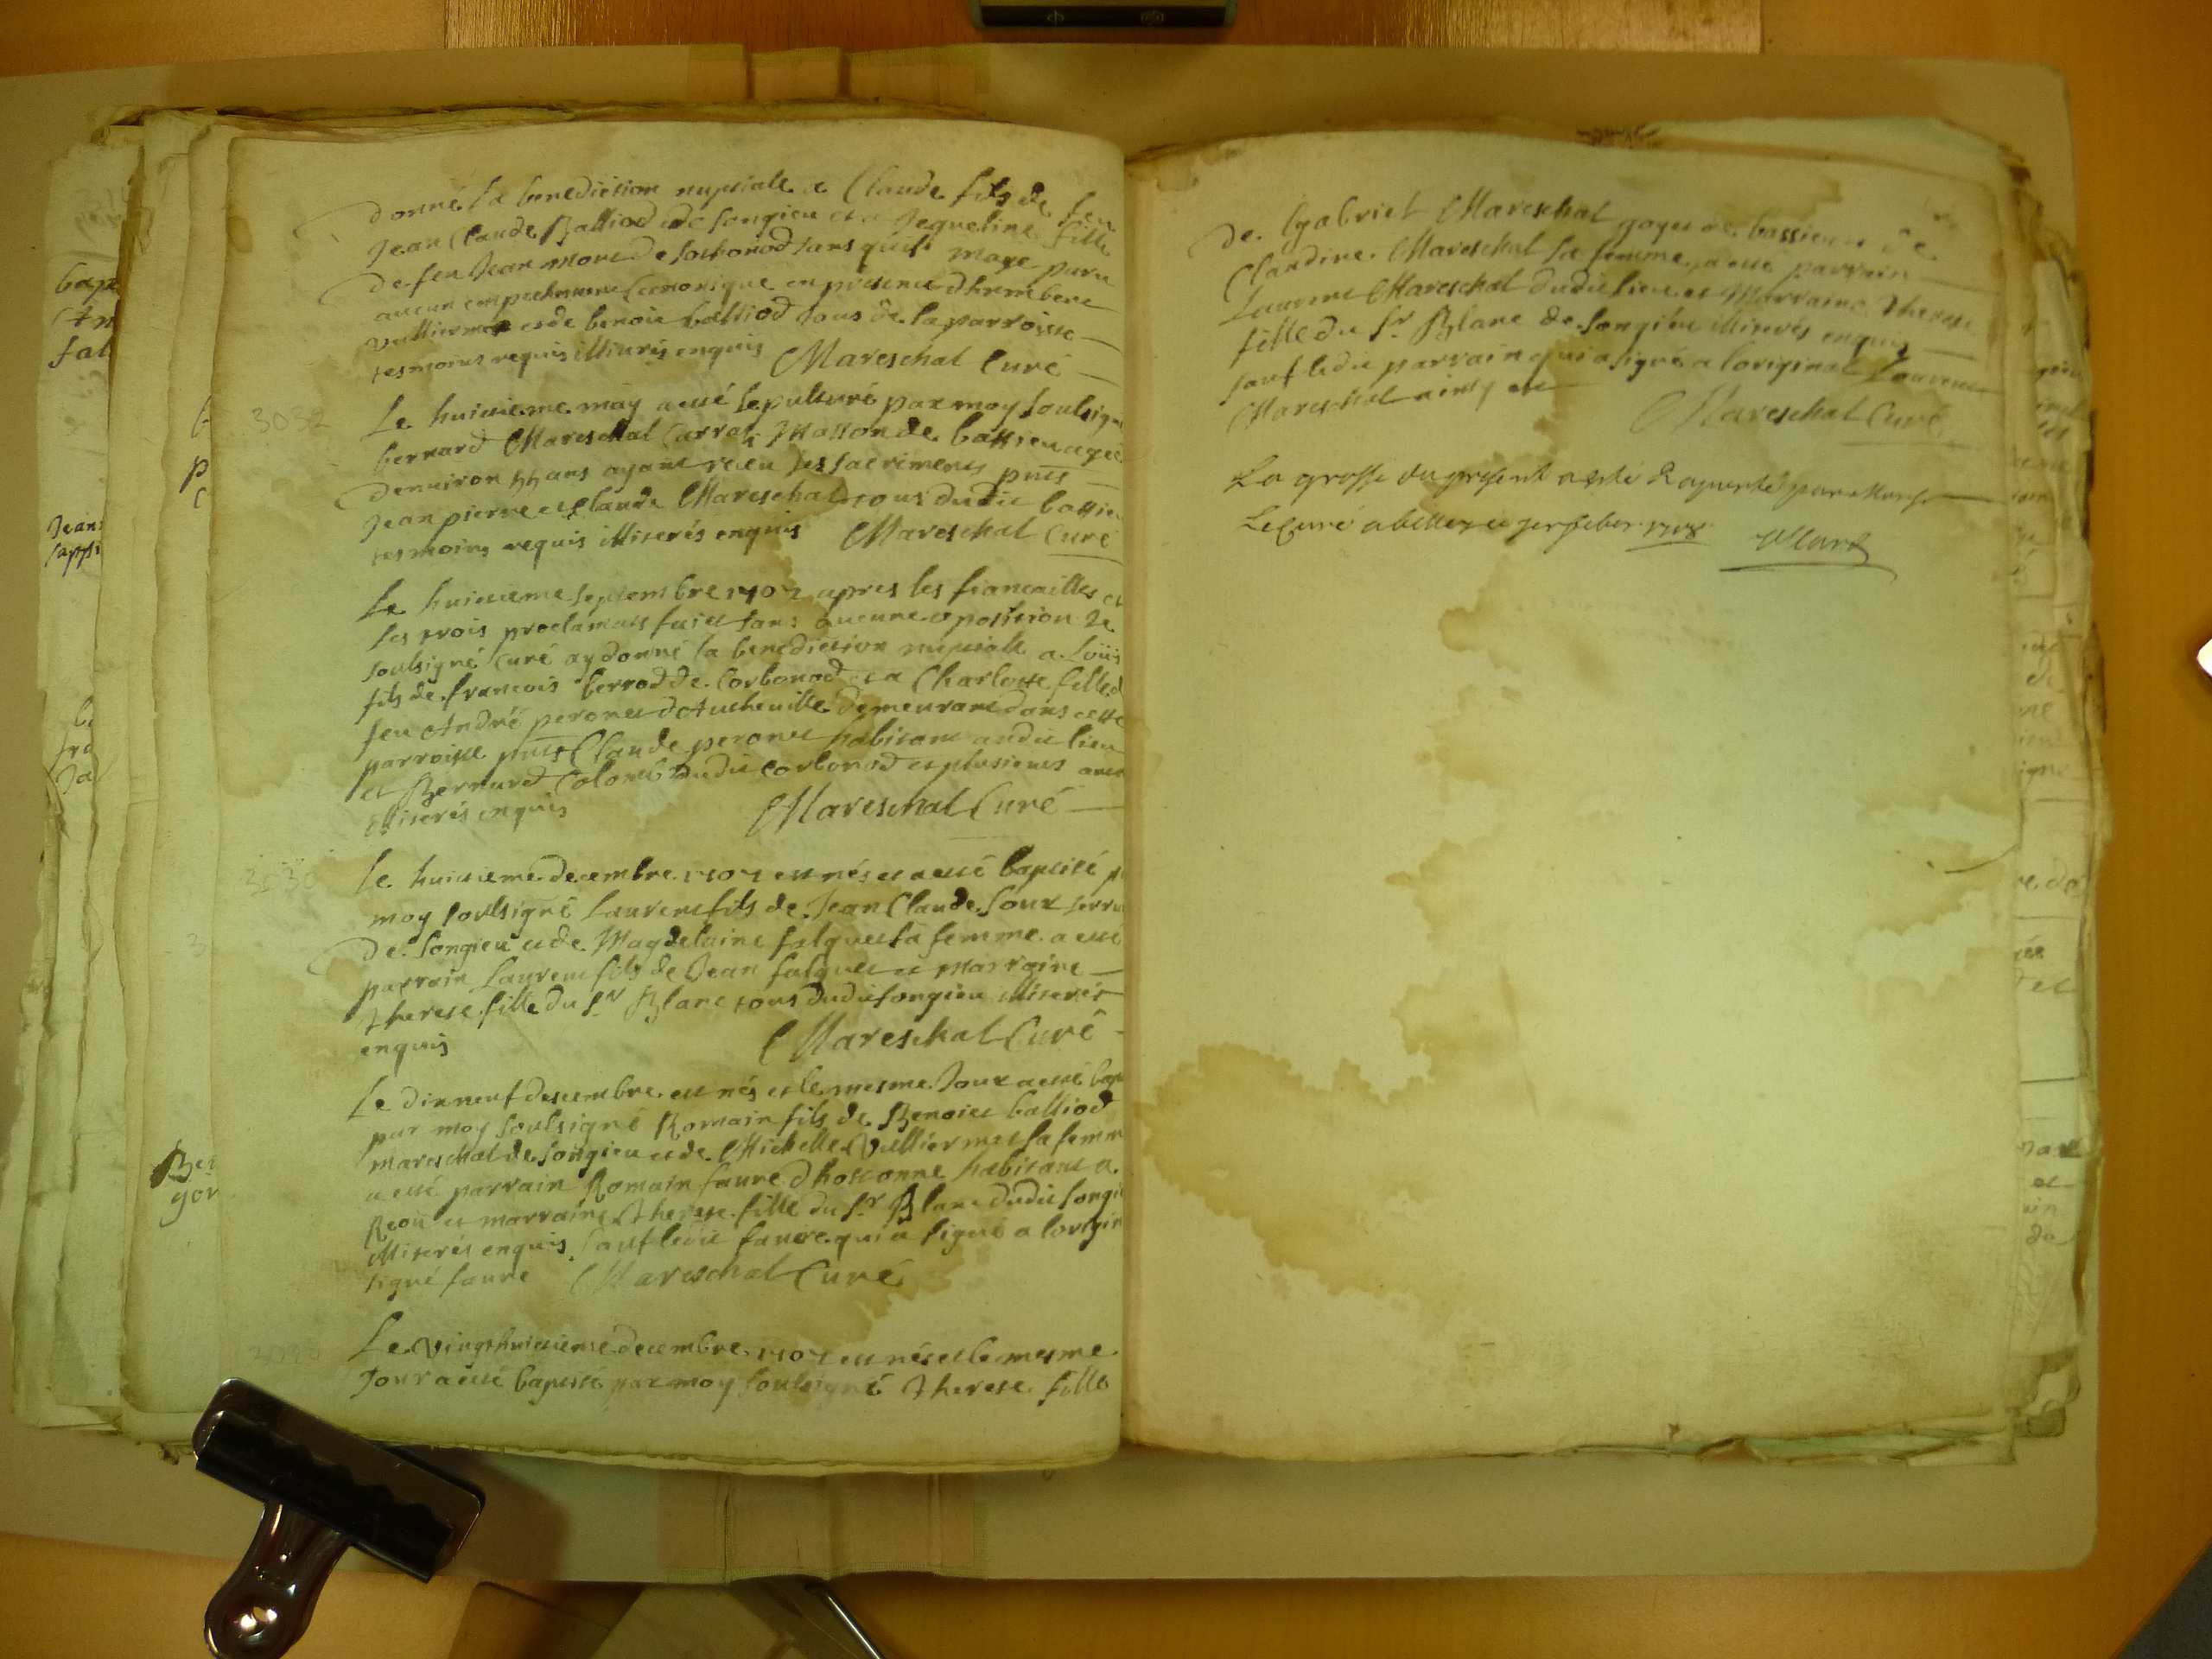 donné la benediction nuptiale a Claude fils de feu
Jean Claude Balliod de Songieu et a Jequeline fille
de feu Jean more de Corbonod sans quil maye paru
aucun empechement Canonique en presence dhumbert
vulliermet et de benoit balliod tous de la parroisse
tesmoins requis illiterés enquis Mareschal Curé
3032
Le huictieme may a esté sepulturé par moy soulsigné
bernard Mareschal Masson de bassieu agé
denuiron ans ayant receu les sacrements pnts
Jean pierre et Claude Mareschal tous dudit bassieu
tesmoins requis illiterés enquis Mareschal Curé
Le huictieme septembre 1707 apres les fiancailles et
les trois proclamats faict sans aucune oposition Je
soulsigné Curé ay donné la benediction nuptiale a Loüis
fils de francois berrod de Corbonod et a Charlotte fille d
feu André peronet demeurant dans cette
parroisse pnts Claude peronet habitant audit lieu
et Bernard Colomb dudit Corbonod et plusieurs autr
illiterés enquis Mareschal Curé
3030
Le huictieme decembre 1707 est nés et a esté baptisé p
moy soulsigné Laurent fils de Jean Claude
de Songieu et de Magdelaine falquet sa femme a esté
parrain Laurent fils de Jean falquet et marraine
therese fille du Sr Blanc tous dudit songieu illiterés
enquis Mareschal Curé
Le dixneuf decembre est nés et le mesme Jour a esté bapt
par moy soulsigné Romain fils de Benoict balliod
mareschal de songieu et de Michelle Vulliermet sa femm
a esté parrain Romain faure dhostonne habitant a
et marraine therese fille du Sr Blanc dudit songi
illiterés enquis sauf ledit faure qui a signé a lorigin
signé faure Mareschal Curé
Le vingthuictieme decembre 1707 est nés et le mesme
Jour a esté baptisé par moy soulsigné therese fille
de Gabriel Mareschal de bassieu et de
Claudine Mareschal sa femme, a esté parrain
Laurent Mareschal dudit lieu et Marraine therese
fille du Sr Blanc de songieu illiterés enquis
sauf ledit parrain qui a signé a loriginal Laurent
Mareschal ainsy est
Mareschal Curé
La grosse du present a esté Raportée par
Le Curé a belley ce feber 1708